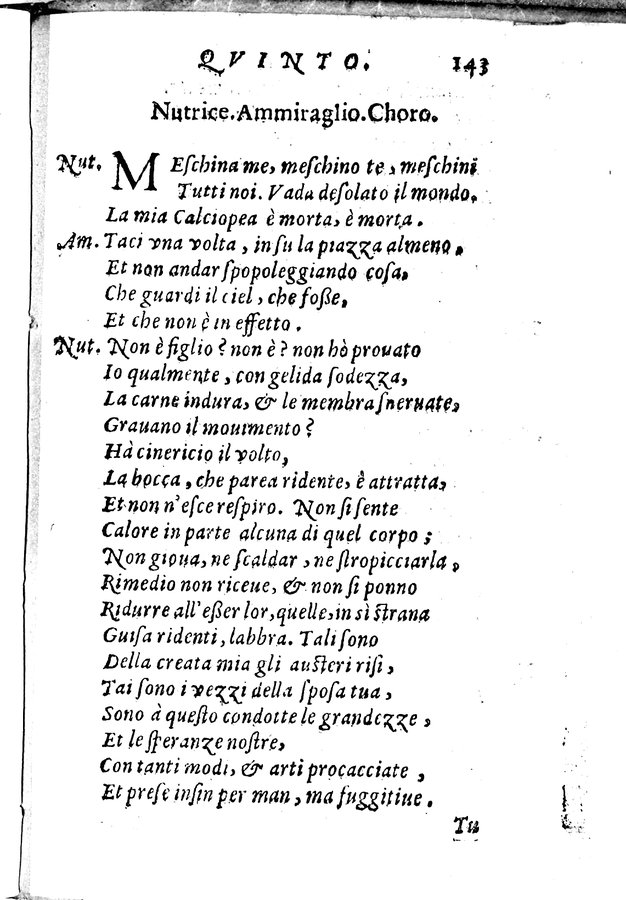 QVINTO. 143
Nutrice.Ammiraglio.Choro.
Nut. MEſchina me, meſchino te, meſchini
Tutti noi. Vada deſolato il mondo.
La mia Calciopea è morta, è morta.
Am. Taci vna volta, in ſu la piazza almeno,
Et non andar ſpopoleggiando coſa,
Che guardi il ciel, che foße,
Et che non è in effetto.
Nut. Non è figlio? non è? non hò prouato
Io qualmente, con gelida ſodezza,
La carne indura, & le membra ſneruate,
Grauano il mouimento?
Hà cinericio il volto,
La bocca, che parea ridente, è attratta,
Et non n'eſce reſpiro. Non ſi ſente
Calore in parte alcuna di quel corpo;
Non gioua, ne ſcaldar, ne ſtropicciarla,
Rimedio non riceue, & non ſi ponno
Ridurre all'eßer lor, quelle, in sì ſtrana
Guiſa ridenti, labbra. Tali ſono
Della creata mia gli auſteri riſi,
Tai ſono i vezzi della ſpoſa tua,
Sono à queſto condotte le grandezze,
Et le ſperanze noſtre,
Con tanti modi, & arti procacciate,
Et preſe inſin per man, ma fuggitiue.
Tu